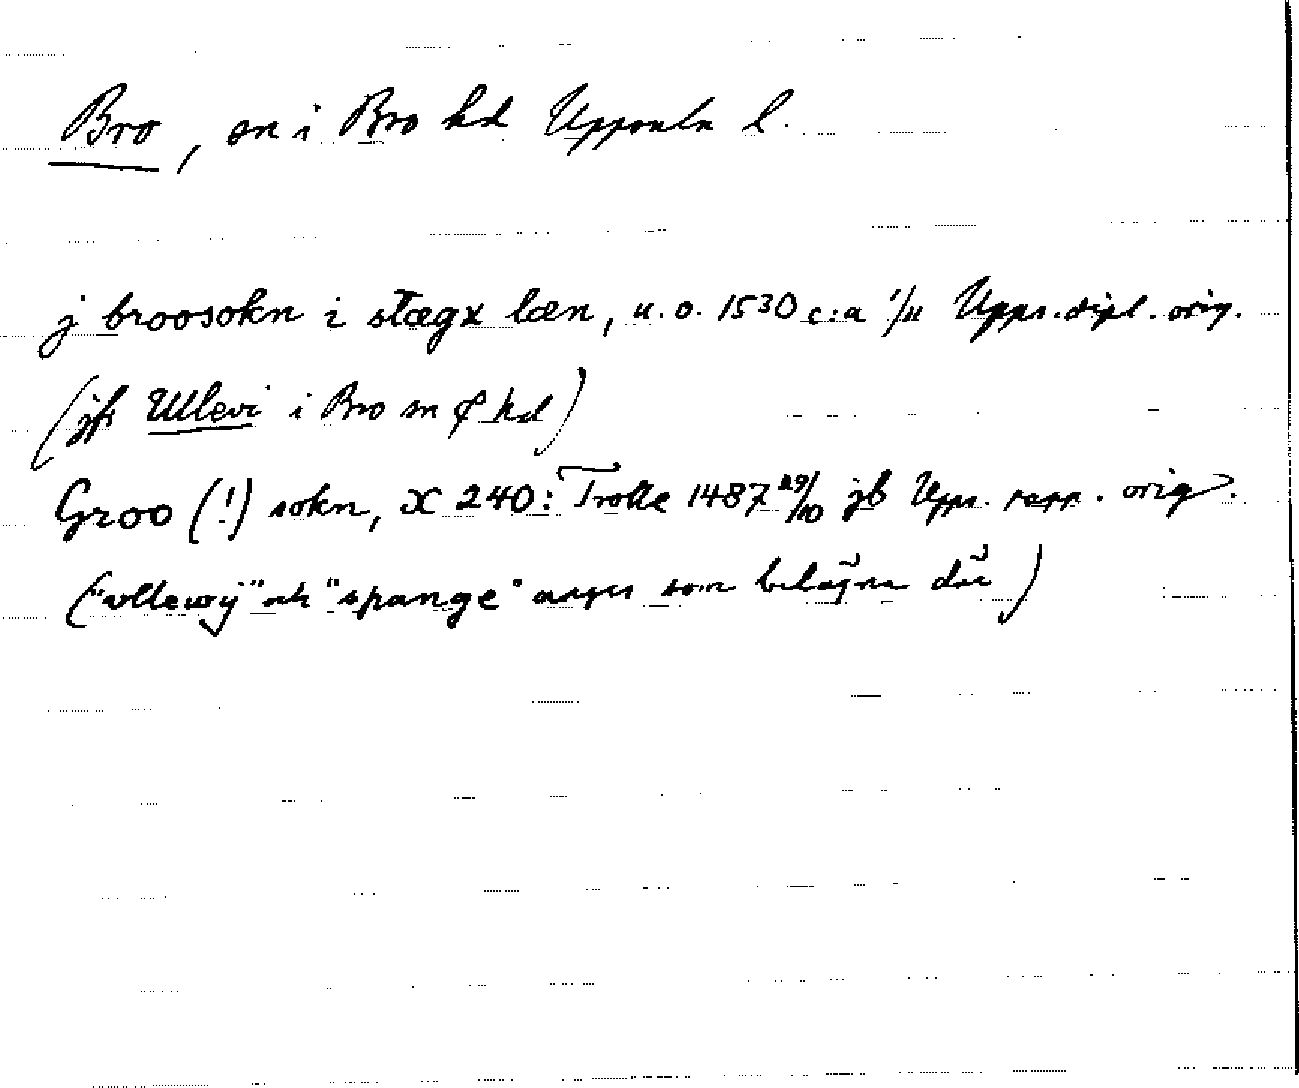 Bro, sn i Bro hd Uppsala l.
j broosokn i stægx læn, u.o. 1530 c:a 1/11 Upps. dipl. orig.
(jfr Ullevi i Bro sn o hd)
Groo (!) sokn, X 240: Trolle 1487 29/10 jb Upps. papp. orig.
("vllewÿ" ok "spange" anges som belägna där)